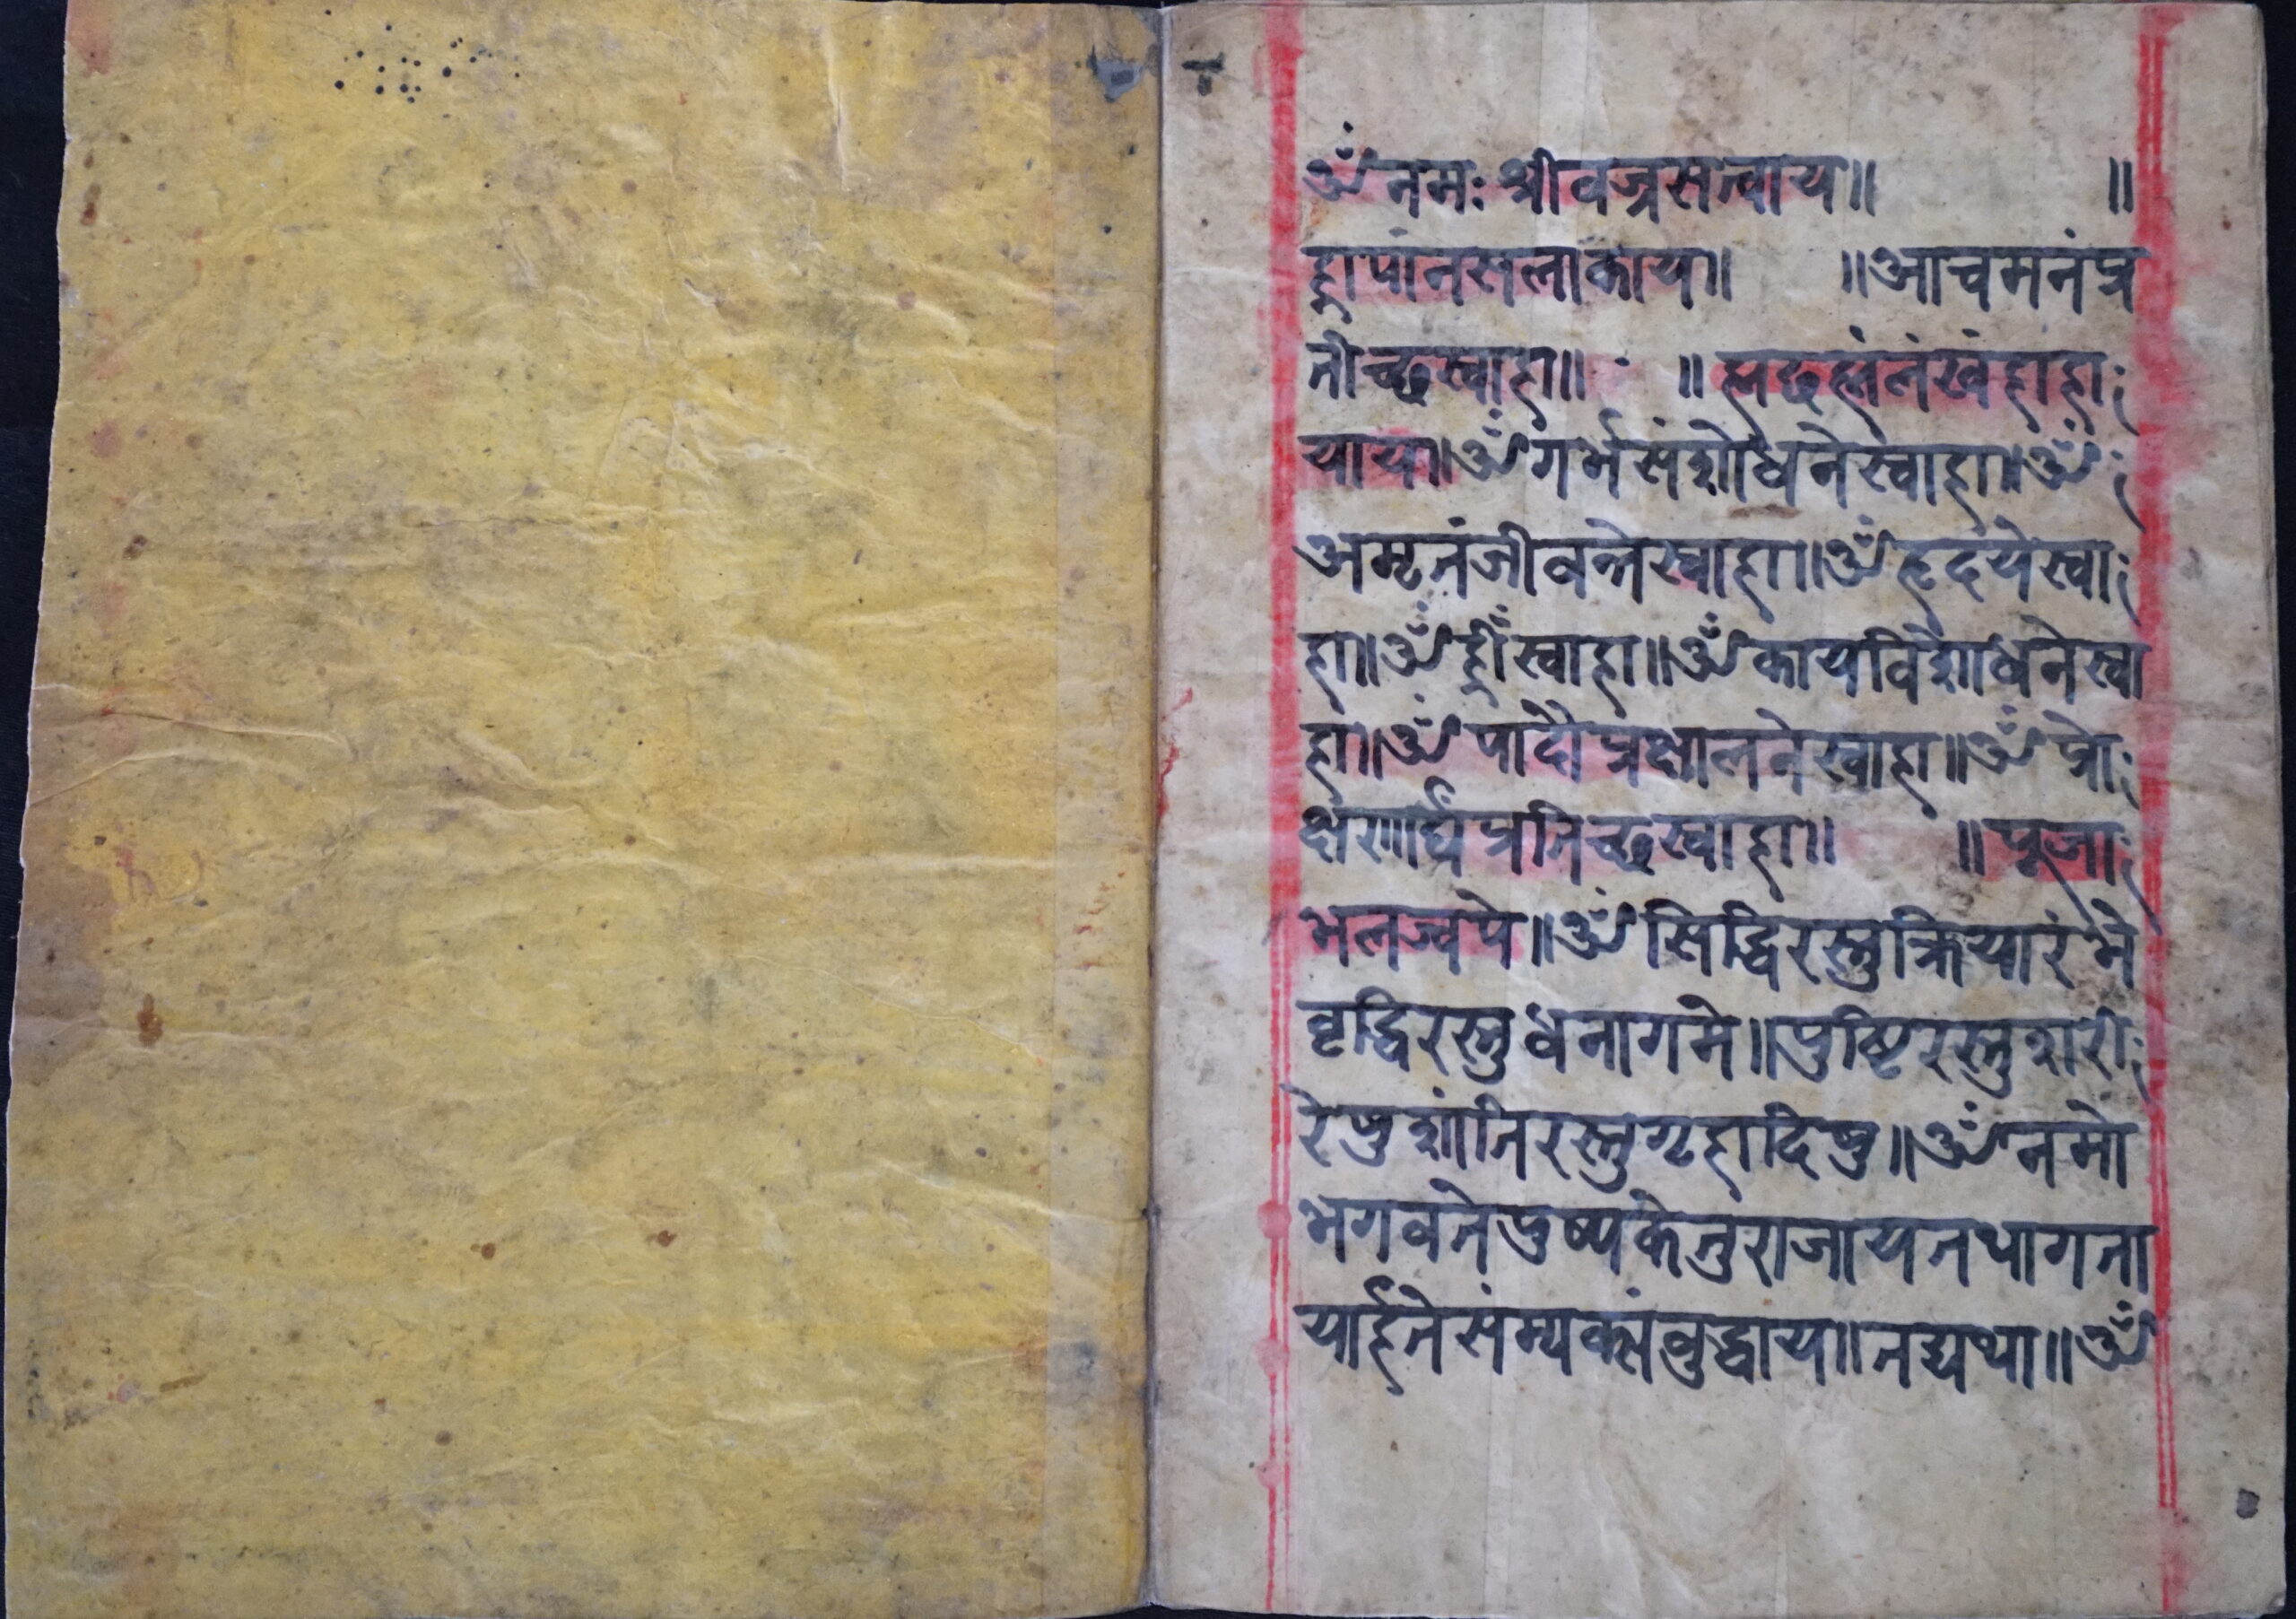 ॐ नमः श्रीवज्रसत्वाय॥ ॥
ह्नापांनसलाकाय॥ ॥आचमनंप्र
तीच्छस्वाहा॥ ॥ह्लद्दह्लंलंखंहाहा
याय॥ॐगर्भसंशोधनेस्वाहा॥ॐ
अमृतंजीवन्तेस्वाहा॥ॐहृदयेस्वा
हा॥ॐह्रीँस्वाहा॥ॐकायविशोधनेस्वा
हा॥ॐपादौप्रक्षालनेस्वाहा॥ॐप्रो
क्षणार्घंप्रतिच्छस्वाहा॥ ॥पूजा
भलज्वपे॥ॐसिद्धिरस्तुक्रियारंभे
वृद्धिरस्तुधनागमे॥पुष्टिरस्तुशरी
रेषुशांतिरस्तुगृहादिषु॥ॐनमो
भगवतेपुष्पकेतुराजायतथागता
यार्हतेसंम्यक्संबुद्धाय॥तद्यथा॥ॐ